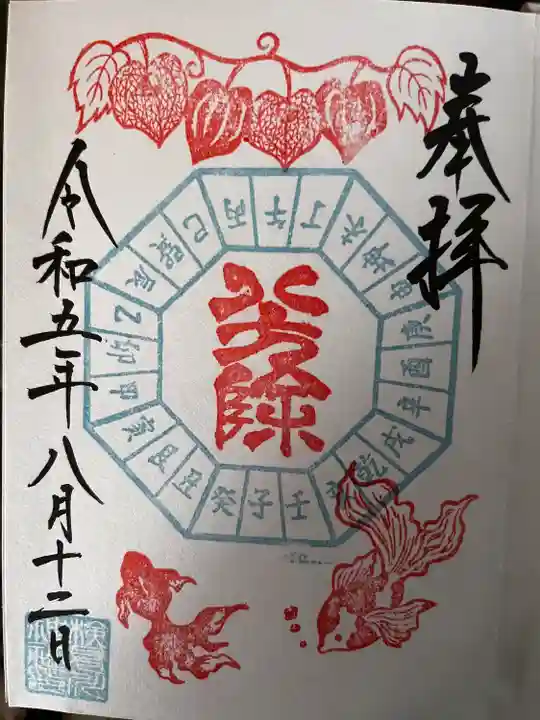 奉拝
八方除
巳
丙
午
丁
未
坤
申
庚
酉
辛
戌
乾
壬
子
癸
丑
艮
亥
甲
卯
乙
辰
巽
令和五年八月十二日